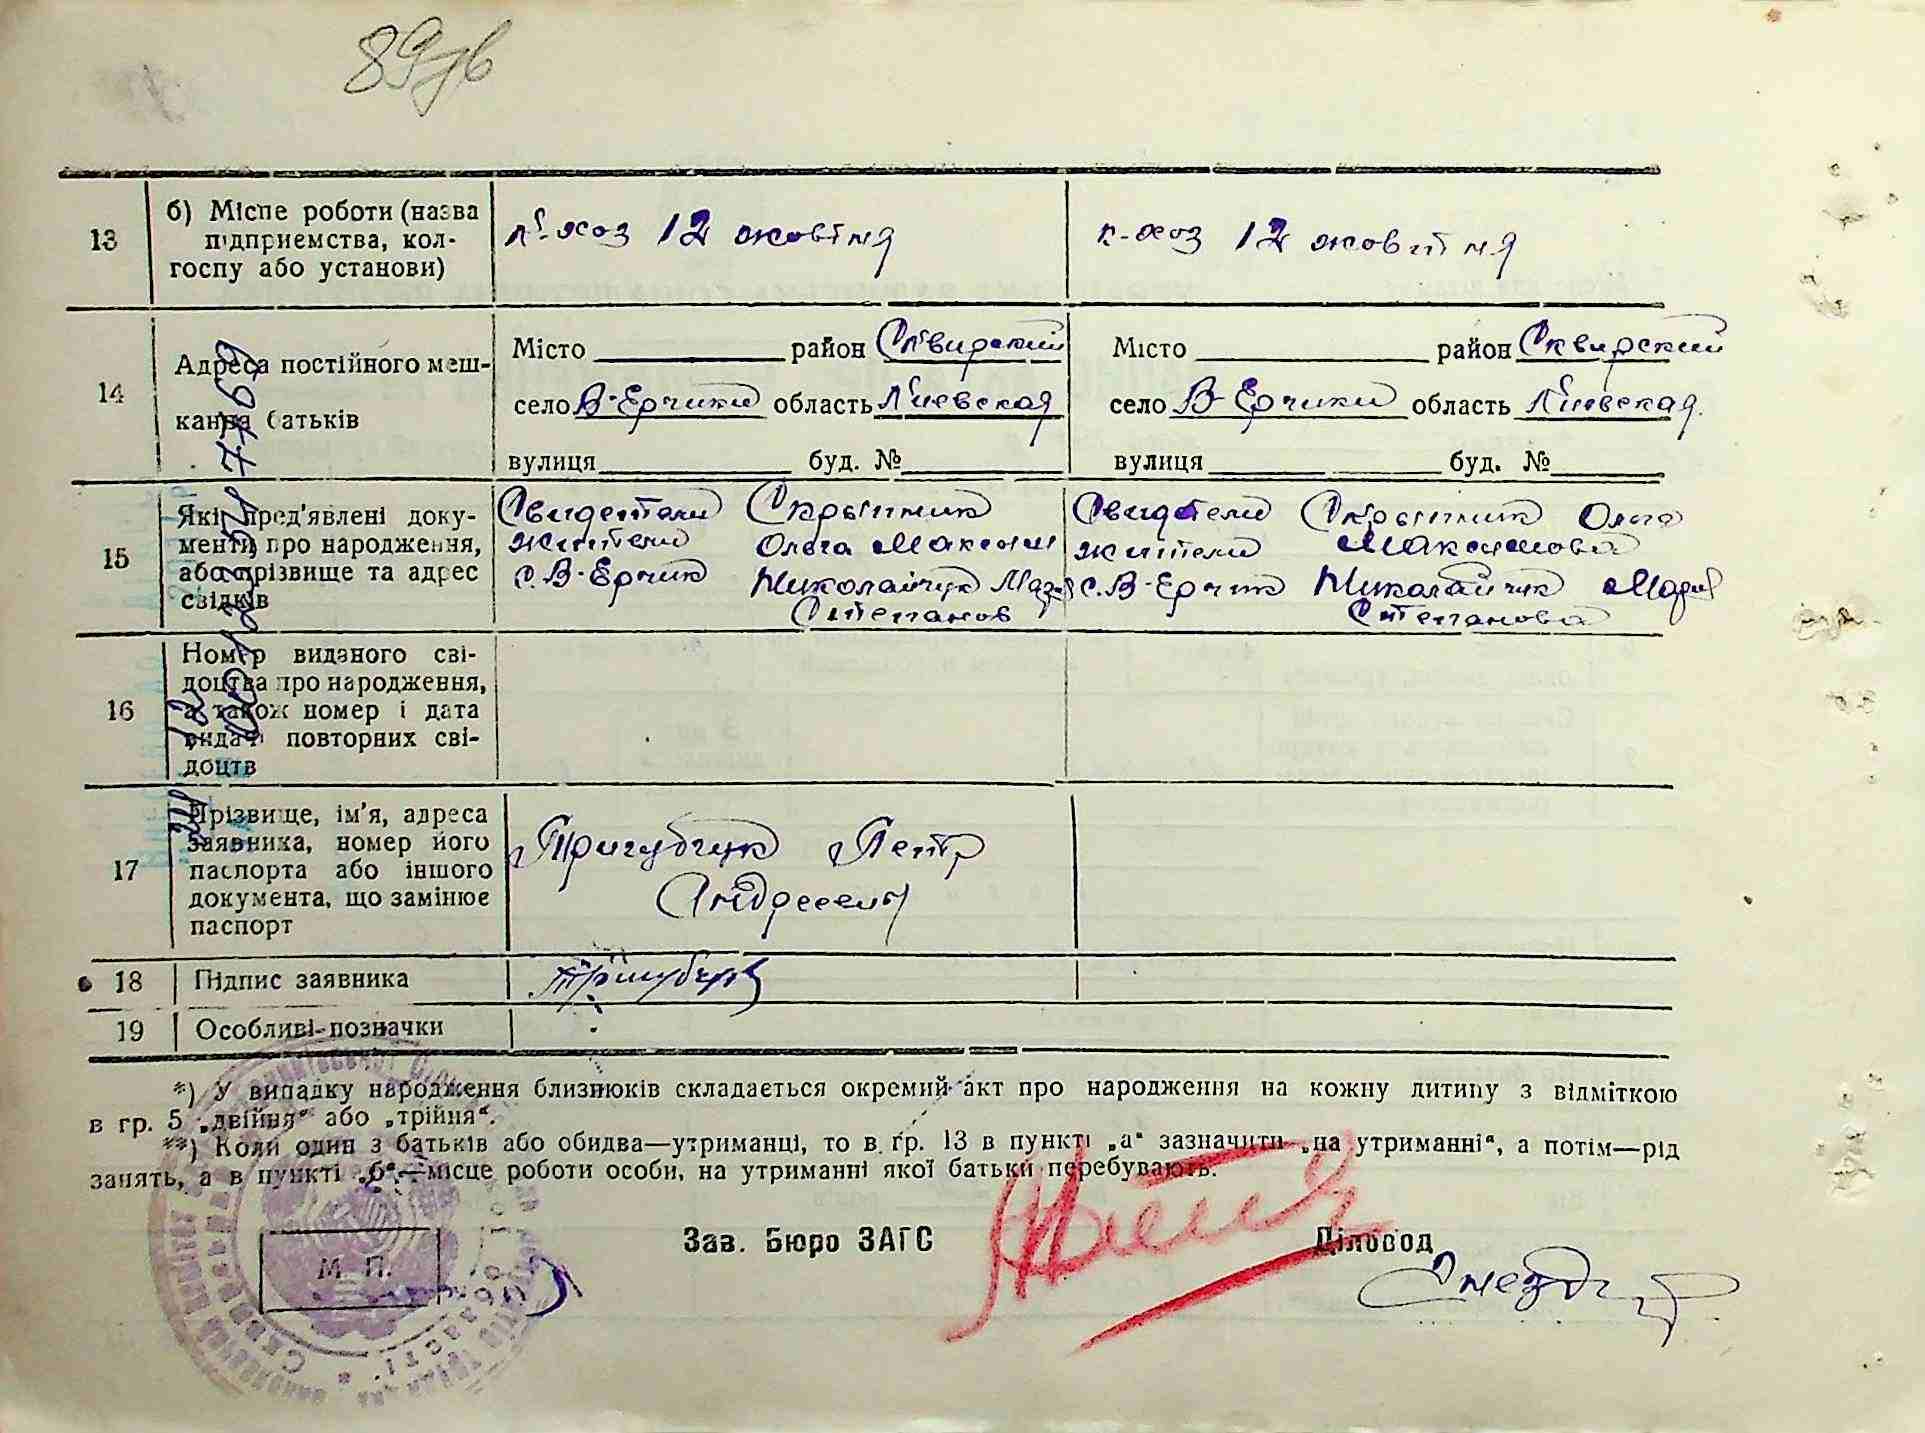 89зв
13
б) Місце роботи (назва
підприємства, кол-
госпу або установи)
к-хоз 12 жовтня
к-хоз 12 жовтня
14
Адреса постійного меш-
кання батьків
Місто район Сквирский
село В-Ерчики область Киевская
вулиця буд. №
Місто район Сквирский
село В-Ерчики область Киевская.
вулиця буд. №
15
Які пред'явлені доку-
менти про народження,
або прізвище та адрес
свідків
Свидетели Скрыпник
жители Ольга Максим
с. В-Ерчик Николайчук Мария
Степанов
Свидетели Скрыпник Ольга
жители Максимова
с. В-Ерчик Николайчук Мария
Степанова
16
Номер виданого сві-
доцтва про народження,
а також номер і дата
видачі повторних сві-
доцтв
17
Прізвище, ім'я, адреса
заявника, номер його
паспорта або іншого
документа, що замінює
паспорт
Тригубчук Петр
Андреевич
18
Підпис заявника
Тригубчук
19
Особливі позначки
*) У випадку народження близнюків складається окремий акт про народження на кожну дитину з відміткою
в гр. 5 „двійня“ або „трійня“.
**) Коли один з батьків або обидва—утриманці, то в гр. 13 в пункті „а“ зазначити „на утриманні“, а потім—рід
занять, а в пункті „б“—місце роботи особи, на утриманні якої батьки перебувають.
Зав. Бюро ЗАГС
Діловод
М. П.